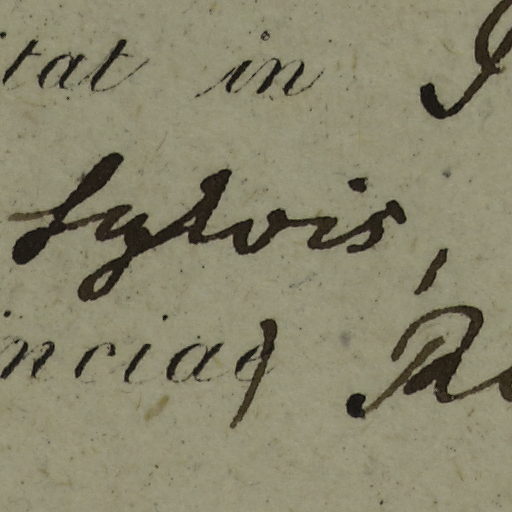 itat in
Sylvis,
inciae